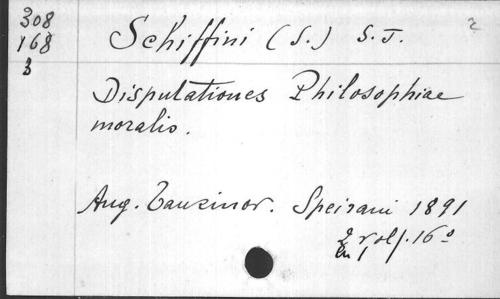 308
168
3
Schiffini (S.) S. J.
2
Disputationes Philosophiae
moralis.
Aug. Taurinor. Speirani 1891
2 vol. 16°
in 1